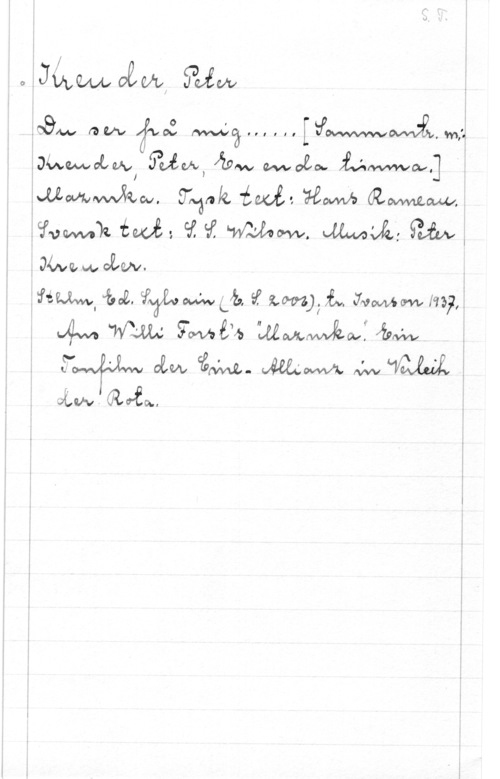 S, T.
Kreuder, Peter
Du ser på mig...... [Sammantr. m.:
Kreuder, Peter, En enda timma.]
Mazurka. Tysk text: Hans Rameau.
Svensk text: S. S. Wilson. Musik: Peter
Kreuder.
Sthlm, Ed. Sylvain (E. S. 2002); tr. Ivarson 1937.
Aus Willi Forst's "Mazurka". Ein
Tonfilm der Cine-Allianz in Verleih
der Rota.